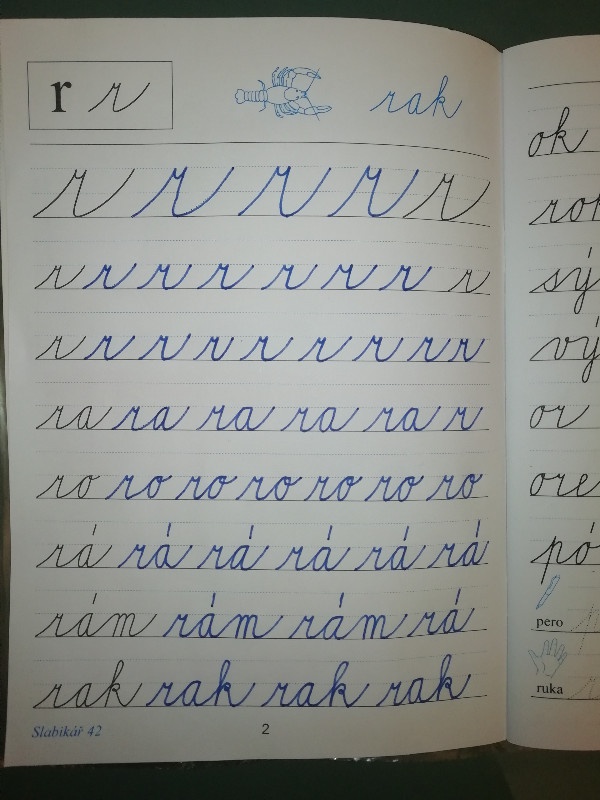 r r rak
r r r r r
r r r r r r r r
r r r r r r r r r
ra ra ra ra ra r
ro ro ro ro ro ro ro
rá rá rá rá rá rá
rám rám rám rá
rak rak rak rak
Slabikář 42 2
ok
sý
vý
or
ore
pó
pero
ruka